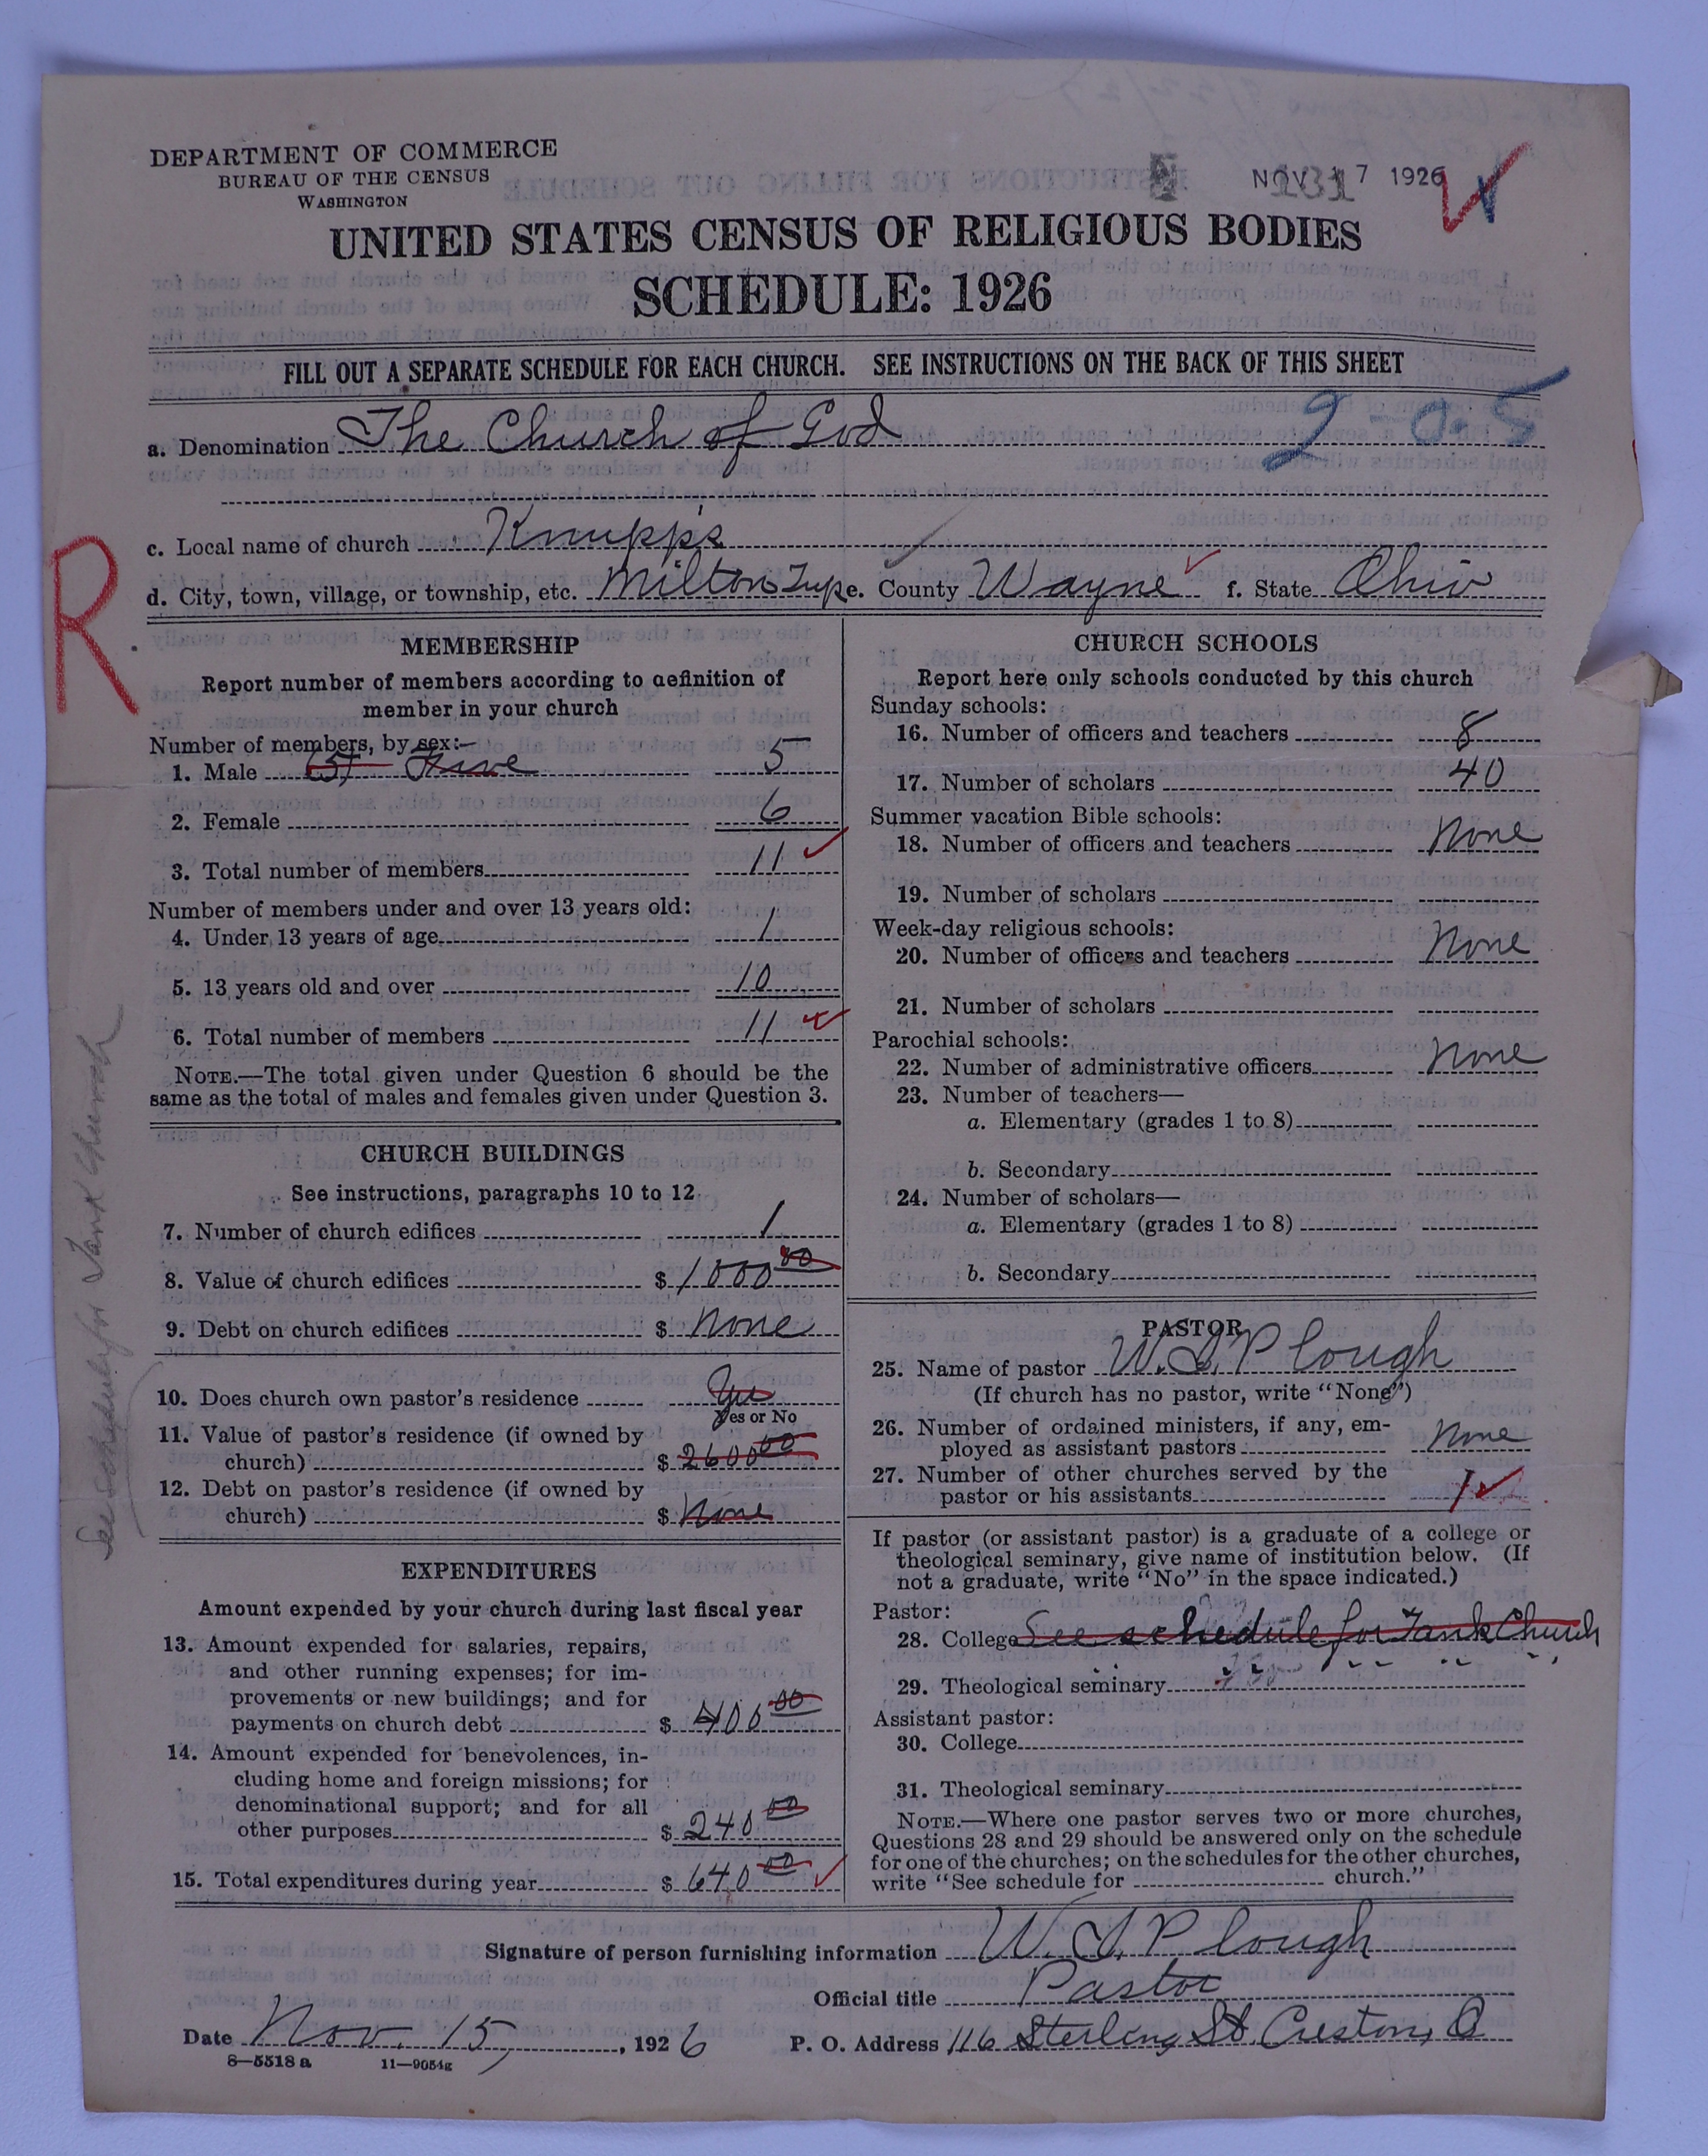 DEPARTMENT OF COMMERCE
BUREAU OF THE CENSUS
WASHINGTON
NOV 17 1926
UNITED STATES CENSUS OF RELIGIOUS BODIES
SCHEDULE: 1926
FILL OUT A SEPARATE SCHEDULE FOR EACH CHURCH. SEE INSTRUCTIONS ON THE BACK OF THIS SHEET
2-0-5
a. Denomination The Church of God
c. Local name of church Knupp's
d. City, town, village, or township, etc. Milton Twp e. County Wayne f. State Ohio
R
MEMBERSHIP
Report number of members according to definition of
member in your church
Number of members, by sex:—
1. Male (5) Five 5
2. Female 6
3. Total number of members 11
Number of members under and over 13 years old:
4. Under 13 years of age 1
5. 13 years old and over 10
6. Total number of members 11
NOTE.—The total given under Question 6 should be the
same as the total of males and females given under Question 3.
CHURCH BUILDINGS
See instructions, paragraphs 10 to 12
7. Number of church edifices 1
8. Value of church edifices $ 1000 00
9. Debt on church edifices $ None
10. Does church own pastor's residence Yes
Yes or No
11. Value of pastor's residence (if owned by
church) $ 2600 00
12. Debt on pastor's residence (if owned by
church) $ None
See Schedule for Tank Church
EXPENDITURES
Amount expended by your church during last fiscal year
13. Amount expended for salaries, repairs,
and other running expenses; for im-
provements or new buildings; and for
payments on church debt $ 400 00
14. Amount expended for benevolences, in-
cluding home and foreign missions; for
denominational support; and for all
other purposes $ 240 00
15. Total expenditures during year $ 640 00
CHURCH SCHOOLS
Report here only schools conducted by this church
Sunday schools:
16. Number of officers and teachers 8
17. Number of scholars 40
Summer vacation Bible schools:
18. Number of officers and teachers None
19. Number of scholars
Week-day religious schools:
20. Number of officers and teachers None
21. Number of scholars
Parochial schools:
22. Number of administrative officers None
23. Number of teachers—
a. Elementary (grades 1 to 8)
b. Secondary
24. Number of scholars—
a. Elementary (grades 1 to 8)
b. Secondary
PASTOR
25. Name of pastor W. S. Plough
(If church has no pastor, write "None")
26. Number of ordained ministers, if any, em-
ployed as assistant pastors None
27. Number of other churches served by the
pastor or his assistants 1
If pastor (or assistant pastor) is a graduate of a college or
theological seminary, give name of institution below. (If
not a graduate, write "No" in the space indicated.)
Pastor:
28. College See schedule for Tank Church
29. Theological seminary
Assistant pastor:
30. College
31. Theological seminary
NOTE.—Where one pastor serves two or more churches,
Questions 28 and 29 should be answered only on the schedule
for one of the churches; on the schedules for the other churches,
write "See schedule for church."
Signature of person furnishing information W. S. Plough
Official title Pastor
Date Nov. 15, 1926 P. O. Address 116 Sterling St. Creston, O
8—5518 a 11—9054g